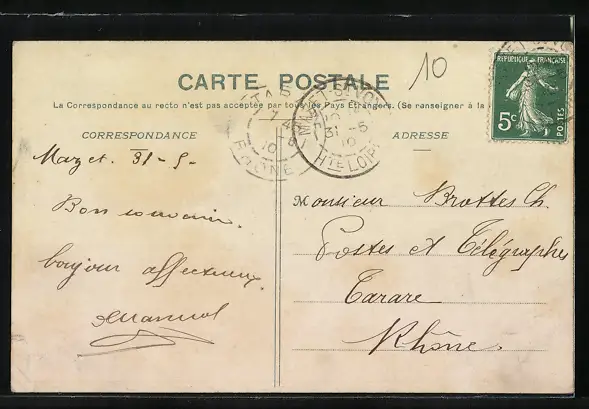 10
CARTE POSTALE
La Correspondance au recto n'est pas acceptée par tous les Pays Étrangers. (Se renseigner à la
CORRESPONDANCE
ADRESSE
RÉPUBLIQUE FRANÇAISE
5c
POSTES
10
RHONE
31 -5
10
Hte LOIRE
Mazet. 31-5-
Bon souvenir.
bonjour affectueux.
Monsieur Brottes Ch.
Postes et Télégraphes
Tarare
Rhône.